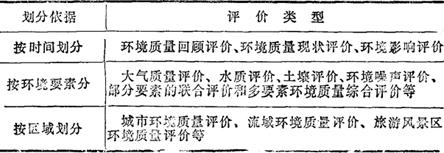 划分依据 评价类型
按时间划分 环境质量回顾评价、环境质量现状评价、环境影响评价
按环境要素分 大气质量评价、水质评价、土壤评价、环境噪声评价、
部分要素的联合评价和多要素环境质量综合评价等
按区域划分 城市环境质量评价、流域环境质量评价、旅游风景区
环境质量评价等